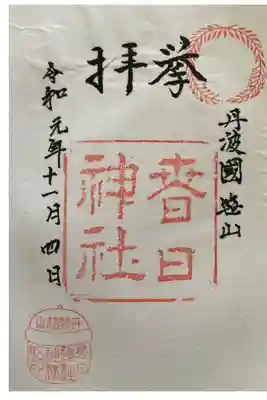 挙拝
丹波國篠山
春日
神社
令和元年十一月四日